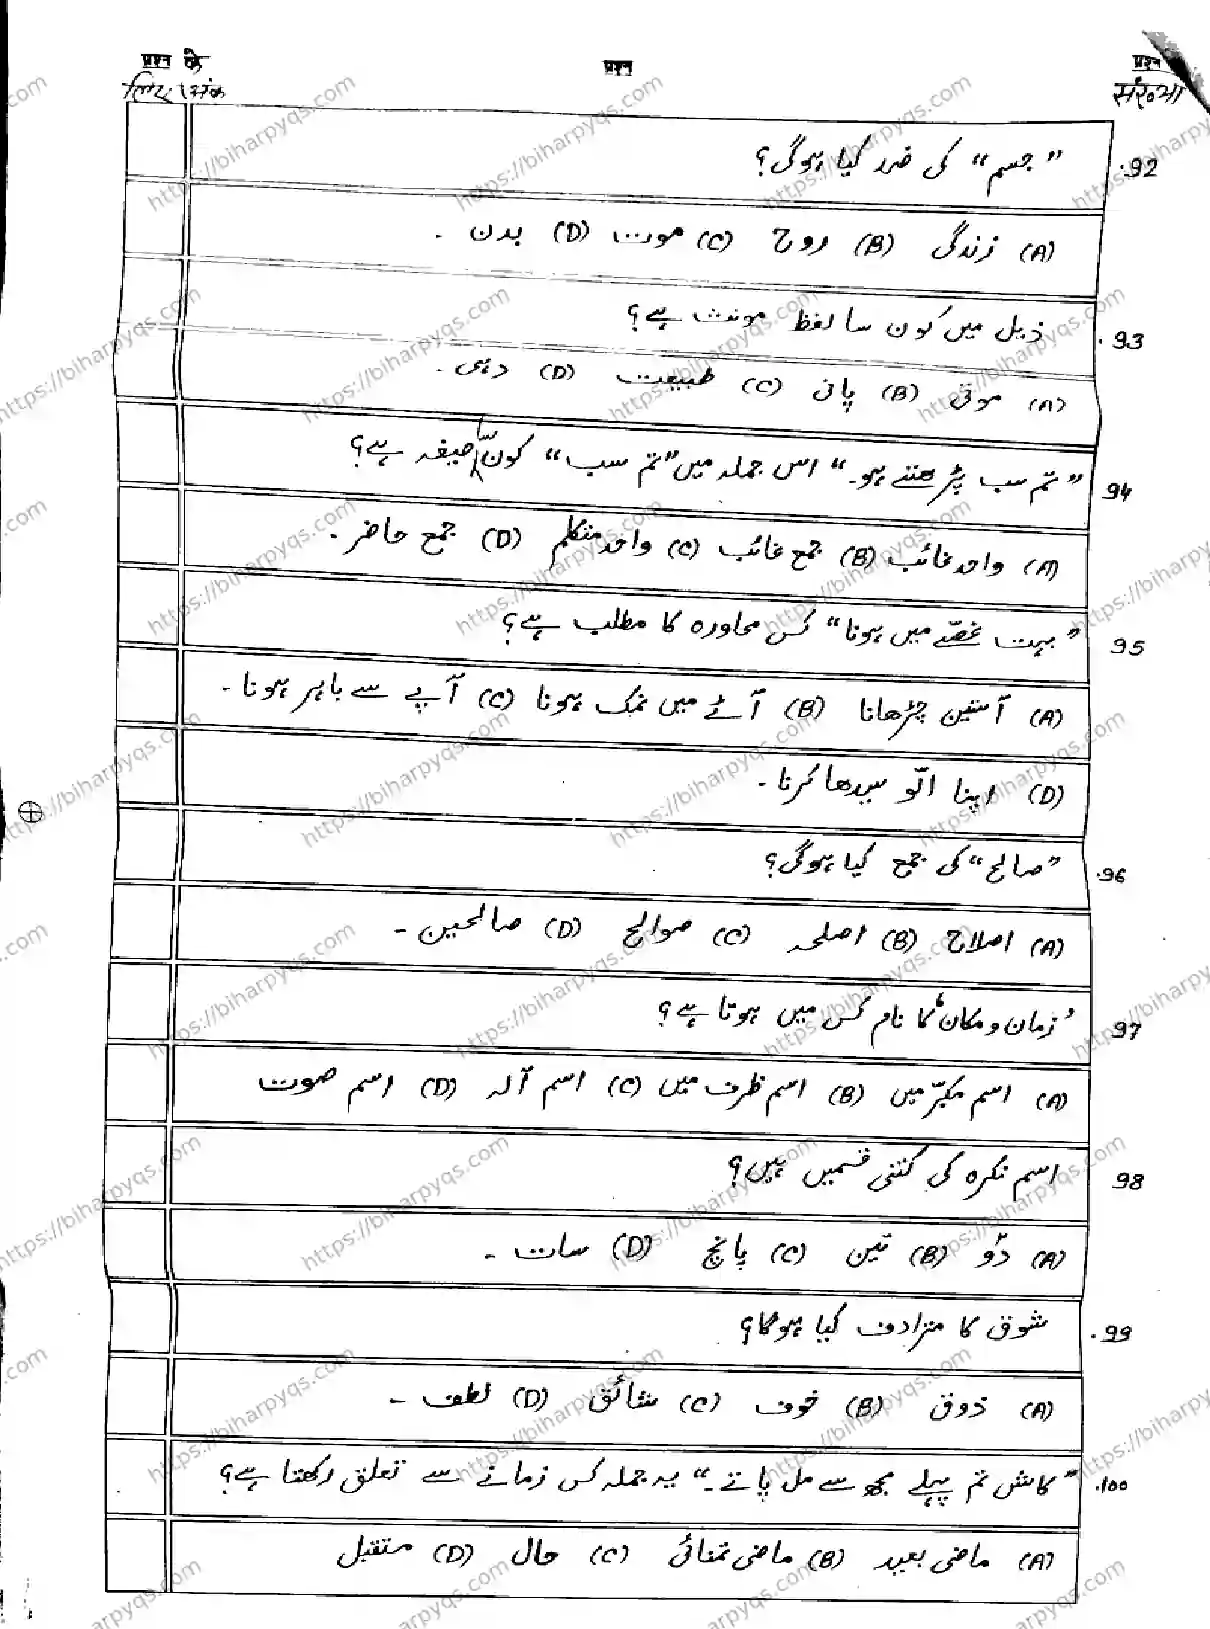 प्रश्न के
लिए अंक
प्रश्न
प्रश्न
संख्या
92. "جسم" کی ضد کیا ہوگی؟
(A) زندگی (B) روح (C) موت (D) بدن ۔
93. ذیل میں کون سا لفظ مونث ہے؟
(A) موتی (B) پانی (C) طبیعت (D) دہی ۔
94. "تم سب پڑھتے ہو۔" اس جملہ میں "تم سب" کون سا صیغہ ہے؟
(A) واحد غائب (B) جمع غائب (C) واحد متکلم (D) جمع حاضر ۔
95. "بہت غصّے میں ہونا" کس محاورہ کا مطلب ہے؟
(A) آستین چڑھانا (B) آٹے میں نمک ہونا (C) آپے سے باہر ہونا ۔
(D) اپنا الّو سیدھا کرنا ۔
96. "صالح" کی جمع کیا ہوگی؟
(A) اصلاح (B) اصلحہ (C) صوالح (D) صالحین ۔
97. 'زمان و مکان' کا نام کس میں ہوتا ہے؟
(A) اسم مکبّر میں (B) اسم ظرف میں (C) اسم آلہ (D) اسم صوت
98. اسم نکرہ کی کتنی قسمیں ہیں؟
(A) دو (B) تین (C) پانچ (D) سات ۔
99. شوق کا مترادف کیا ہوگا؟
(A) ذوق (B) خوف (C) شائق (D) لطف ۔
100. "کاش تم پہلے مجھ سے مل پاتے۔" یہ جملہ کس زمانے سے تعلق رکھتا ہے؟
(A) ماضی بعید (B) ماضی تمنائی (C) حال (D) مستقبل
https://biharpyqs.com